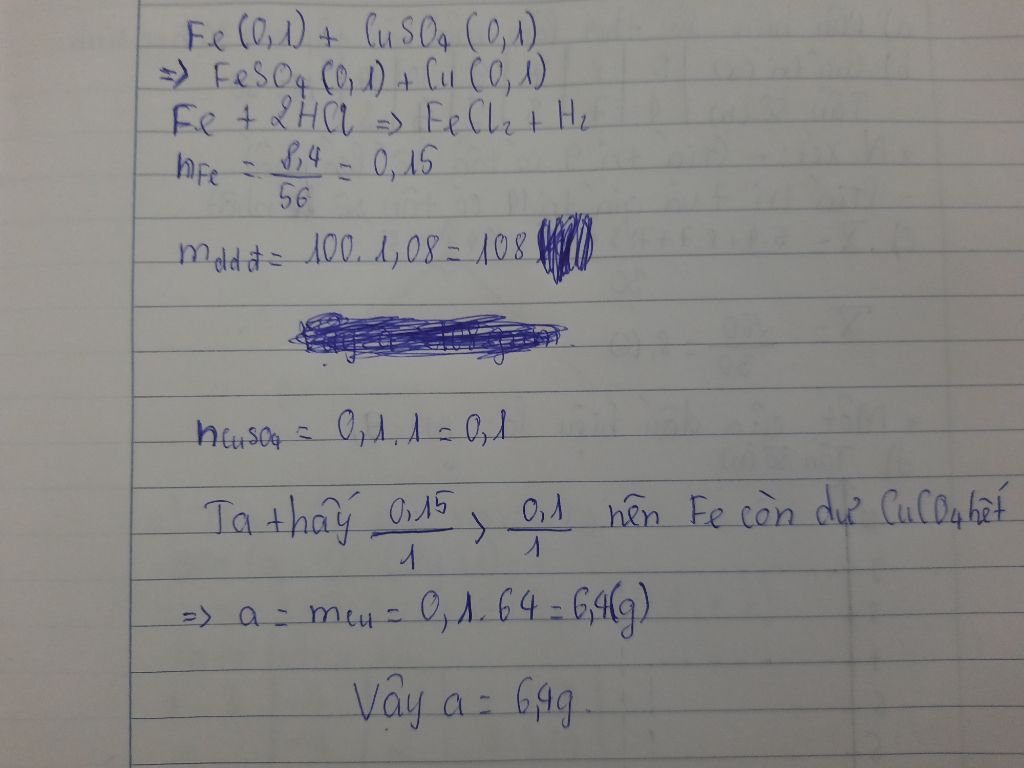 Fe (0,1) + CuSO4 (0,1)
=> FeSO4 (0,1) + Cu (0,1)
Fe + 2HCl => FeCl2 + H2
nFe = 8,4/56 = 0,15
mddđ = 100. 1,08 = 108
nCuSO4 = 0,1. 1 = 0,1
Ta thấy 0,15/1 > 0,1/1 nên Fe còn dư CuCO4 hết
=> a = mCu = 0,1. 64 = 6,4(g)
Vậy a = 6,4g.